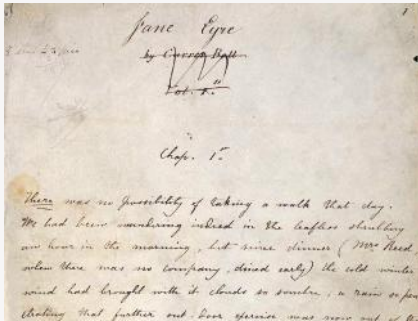 1
Jane Eyre
by Currer Bell
Vol. 1.
Chap. 1.
There was no possibility of taking a walk that day.
We had been wandering indeed in the leafless shrubbery
an hour in the morning, but since dinner (Mrs Reed,
when there was no company, dined early) the cold winter
wind had brought with it clouds so sombre, a rain so pene
trating that further out-door exercise was now out of